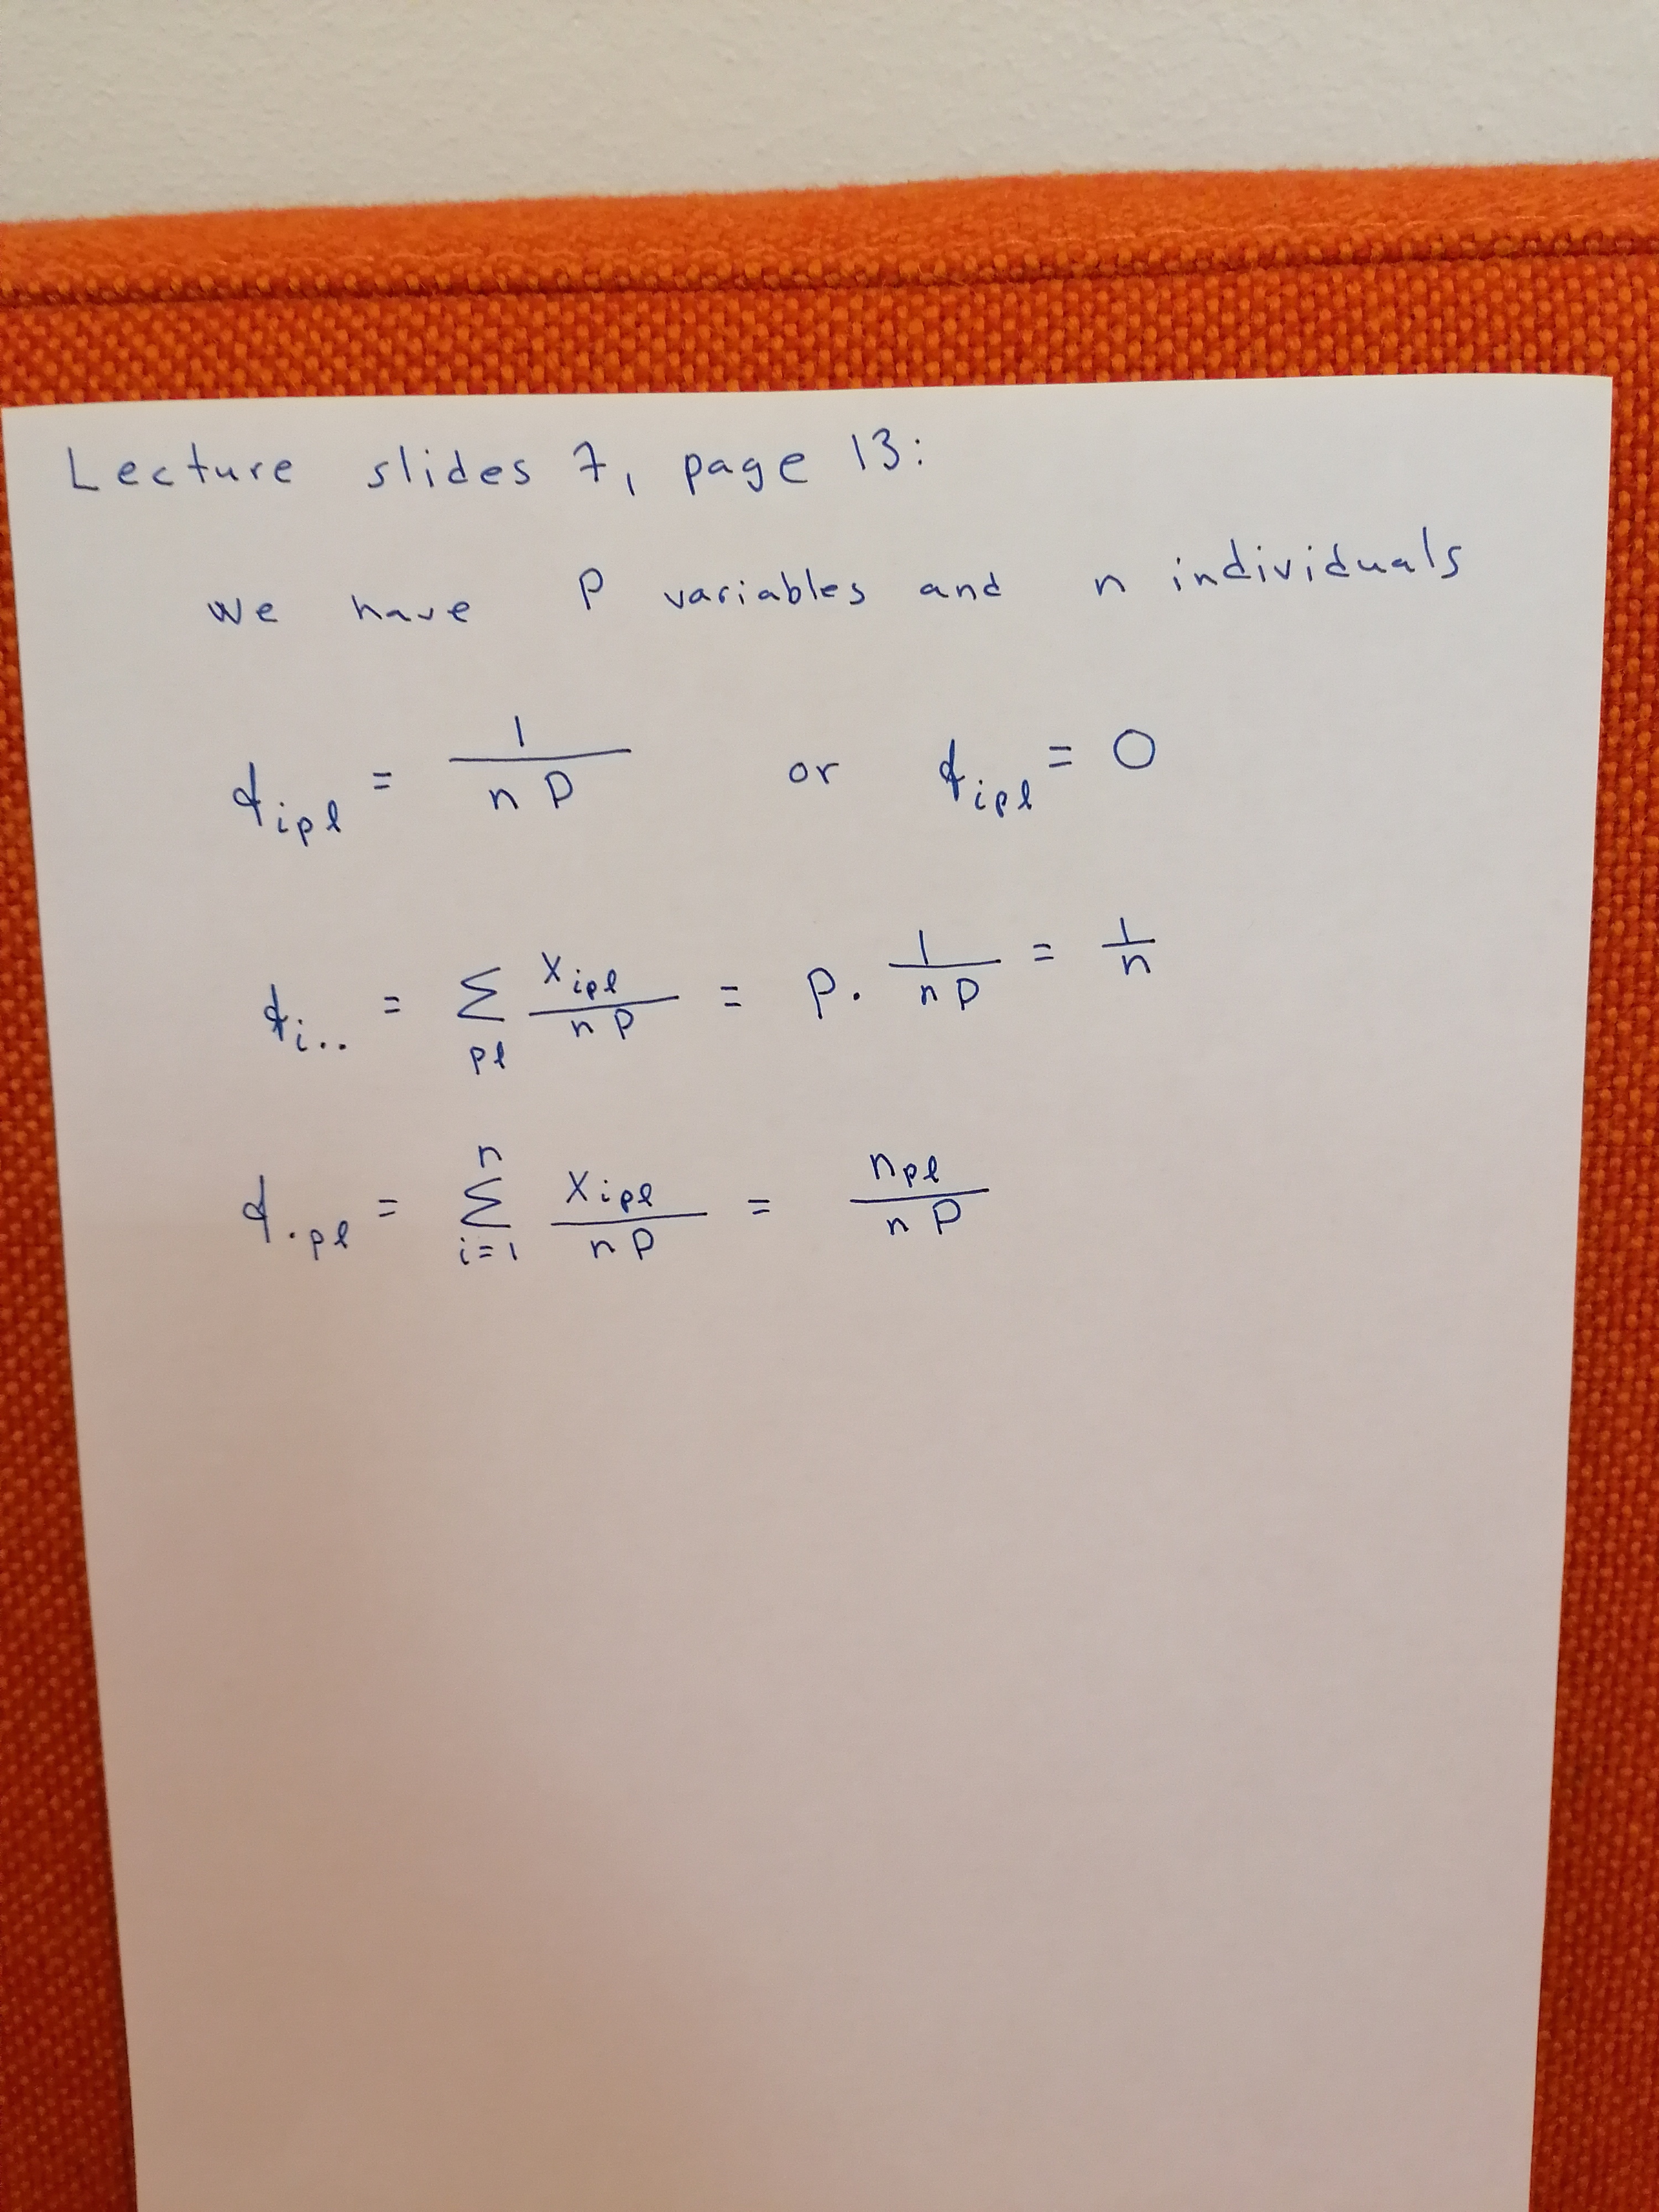 Lecture slides 7, page 13:
we have P variables and n individuals
f_{ipl} = \frac{1}{nP} or f_{ipl} = 0
f_{i..} = \sum_{pl} \frac{x_{ipl}}{nP} = P \cdot \frac{1}{nP} = \frac{1}{n}
f_{.pl} = \sum_{i=1}^{n} \frac{x_{ipl}}{nP} = \frac{n_{pl}}{nP}